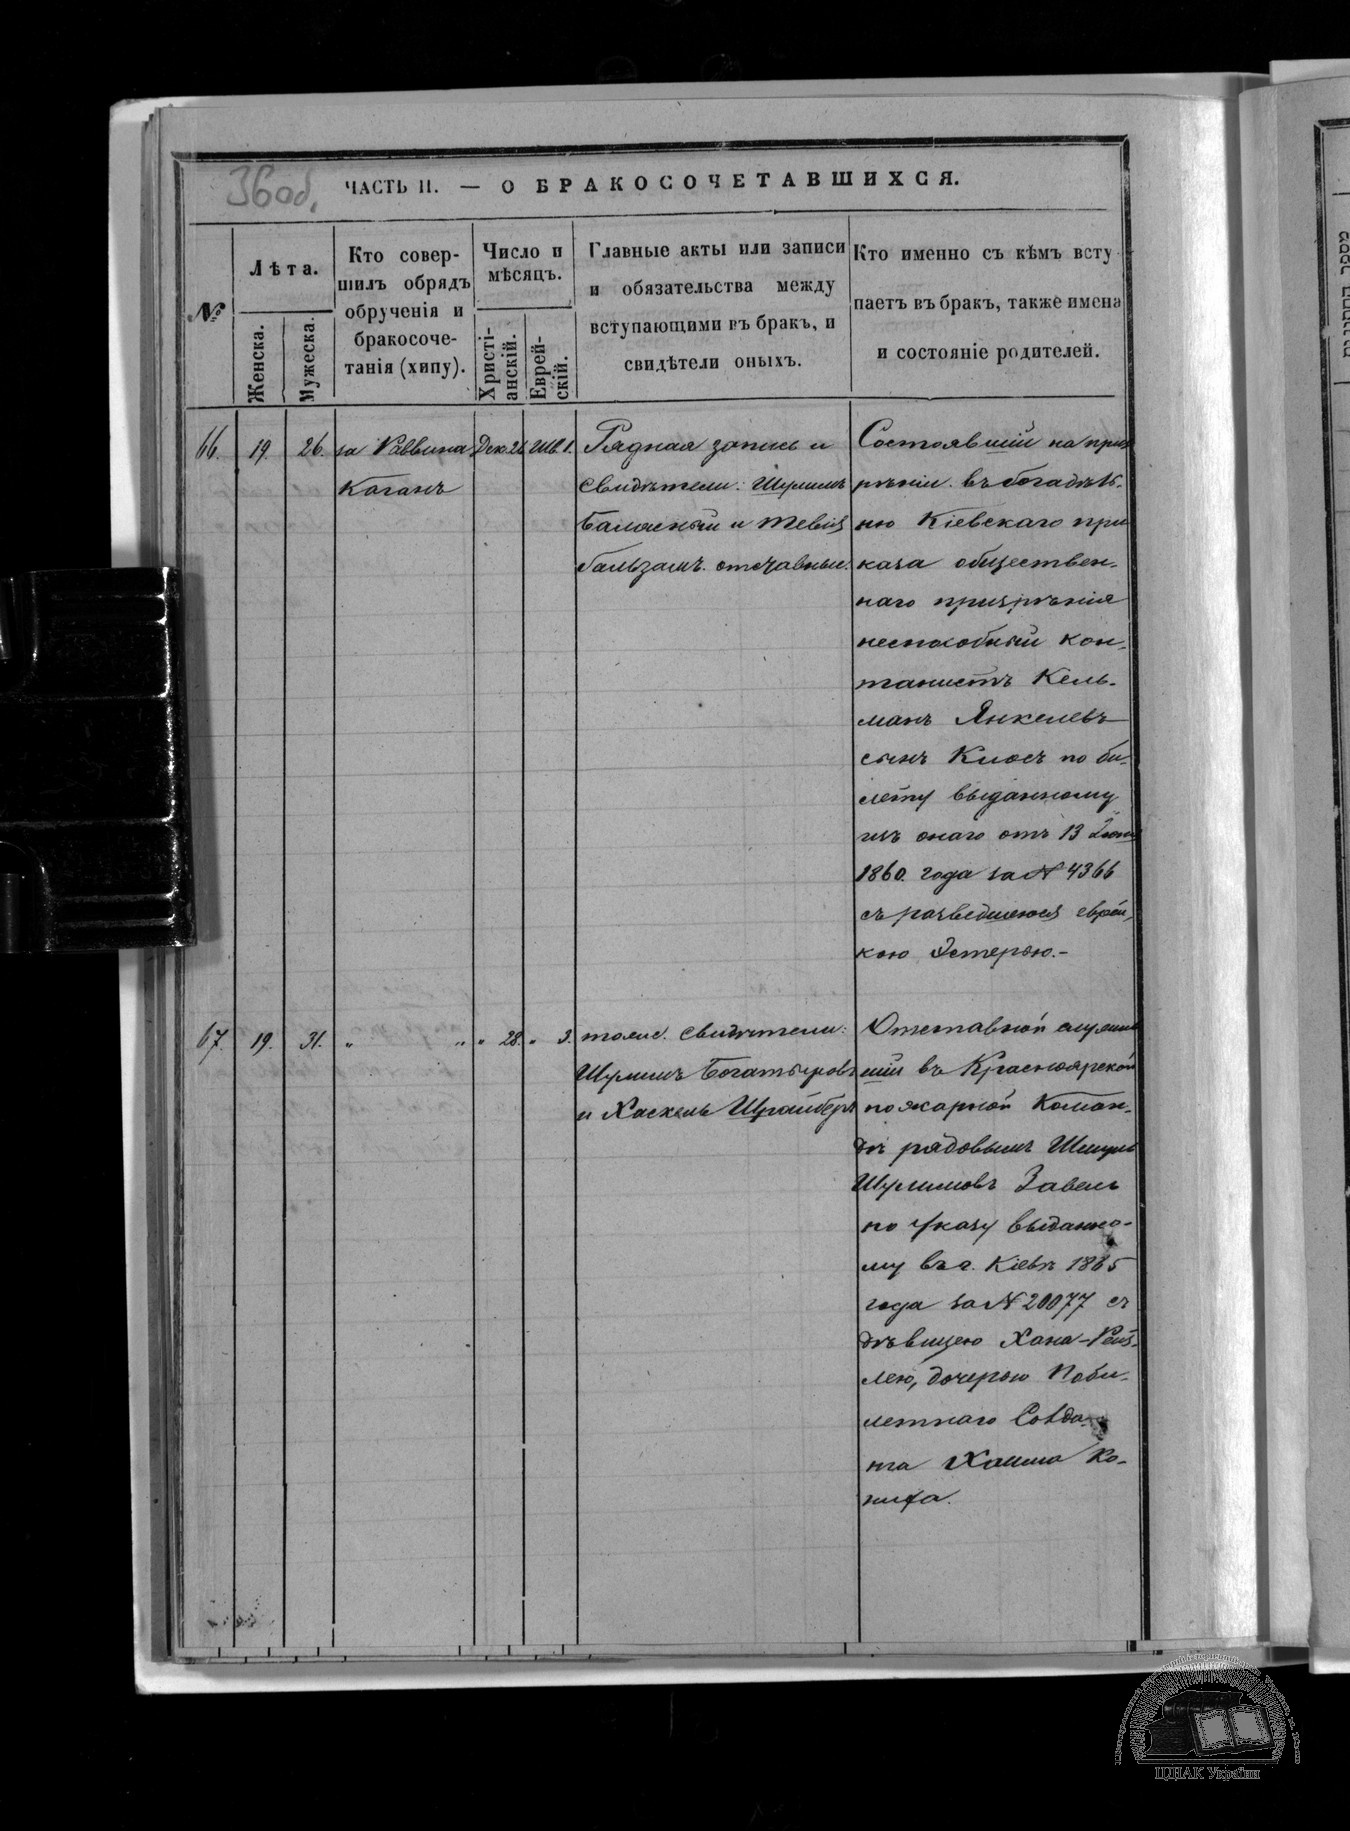 36об.
ЧАСТЬ II. — О БРАКОСОЧЕТАВШИХСЯ.
№
Лѣта.
Женска.
Мужеска.
Кто совер-
шилъ обрядъ
обрученія и
бракосоче-
танія (хипу).
Число и
мѣсяцъ.
Христі-
анскій.
Еврей-
скій.
Главные акты или записи
и обязательства между
вступающими въ бракъ, и
свидѣтели оныхъ.
Кто именно съ кѣмъ всту
паетъ въ бракъ, также имена
и состояніе родителей.
66. 19. 26. за Раввина
Коганъ
Дек. 26 Шв. 1.
Рядная запись и
свидѣтели: Шулимъ
и Тевія
Бальзамъ. отставные.
Состоявшій на приз
рѣніи въ богадѣль-
ню Кіевскаго при
каза обществен-
наго призрѣнія
неспособный кон-
тонистъ Кель-
манъ Янкелевъ
сынъ Клосъ по би-
лету выданному
изъ онаго отъ 13 Іюня
1860. года за № 4366
съ разведшеюся еврей-
кою Эстерою.-
67. 19. 31. " " " 28. " 3.
тоже. свидѣтели:
Шулимъ Богатыровъ
и Хаскель Шрайберъ
Отставной служив
шій въ Красноярской
пожарной Коман-
дѣ рядовымъ Шмуль
Шулимовъ Завель
по указу выданно-
му въ г. Кіевѣ 1865
года за № 20077 съ
дѣвицею Хана-Рей-
лею, дочерью Поби-
летнаго Солда-
та Хаима Ко-
ЦДІАК України